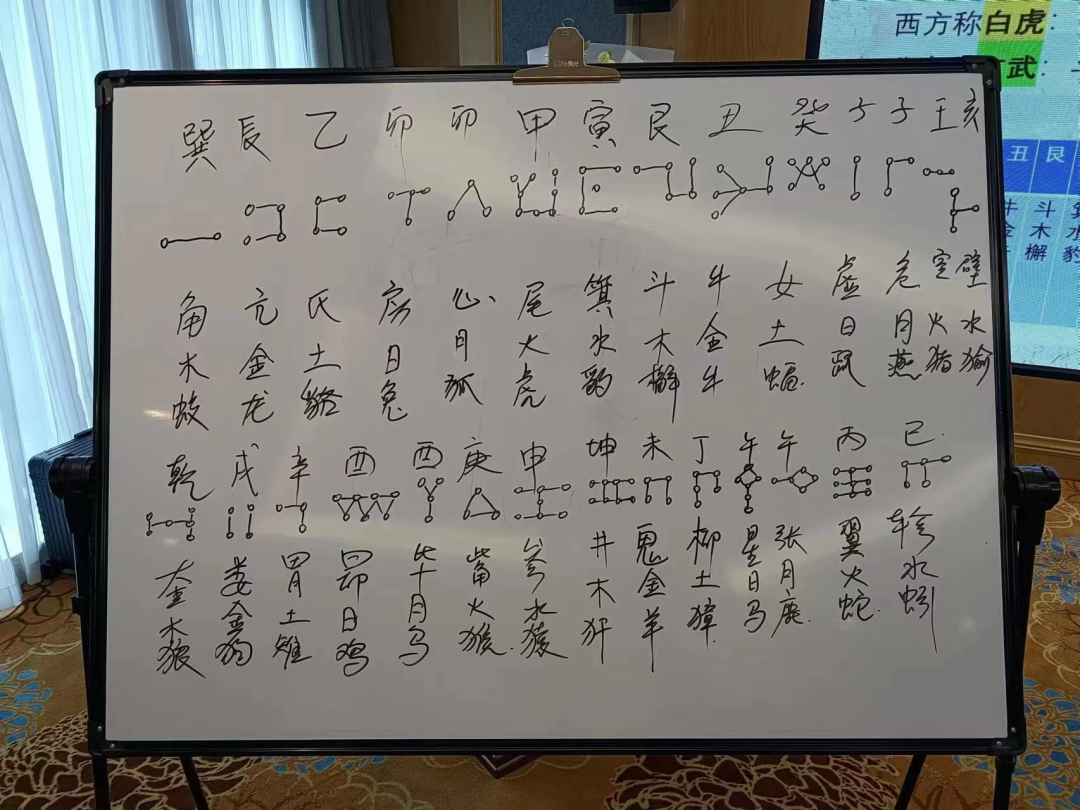 西方称白虎：
武：
丑 艮
井 斗 箕
金 木 水
獬 豹
巽 辰 乙 卯 卯 甲 寅 艮 丑 癸 子 子 壬 亥
角 亢 氐 房 心 尾 箕 斗 牛 女 虚 危 室 壁
木 金 土 日 月 火 水 木 金 土 日 月 火 水
蛟 龙 貉 兔 狐 虎 豹 獬 牛 蝠 鼠 燕 猪 貐
乾 戌 辛 酉 酉 庚 申 坤 未 丁 午 午 丙 巳
奎 娄 胃 昴 毕 觜 参 井 鬼 柳 星 张 翼 轸
木 金 土 日 月 火 水 木 金 土 日 月 火 水
狼 狗 雉 鸡 乌 猴 猿 犴 羊 獐 马 鹿 蛇 蚓